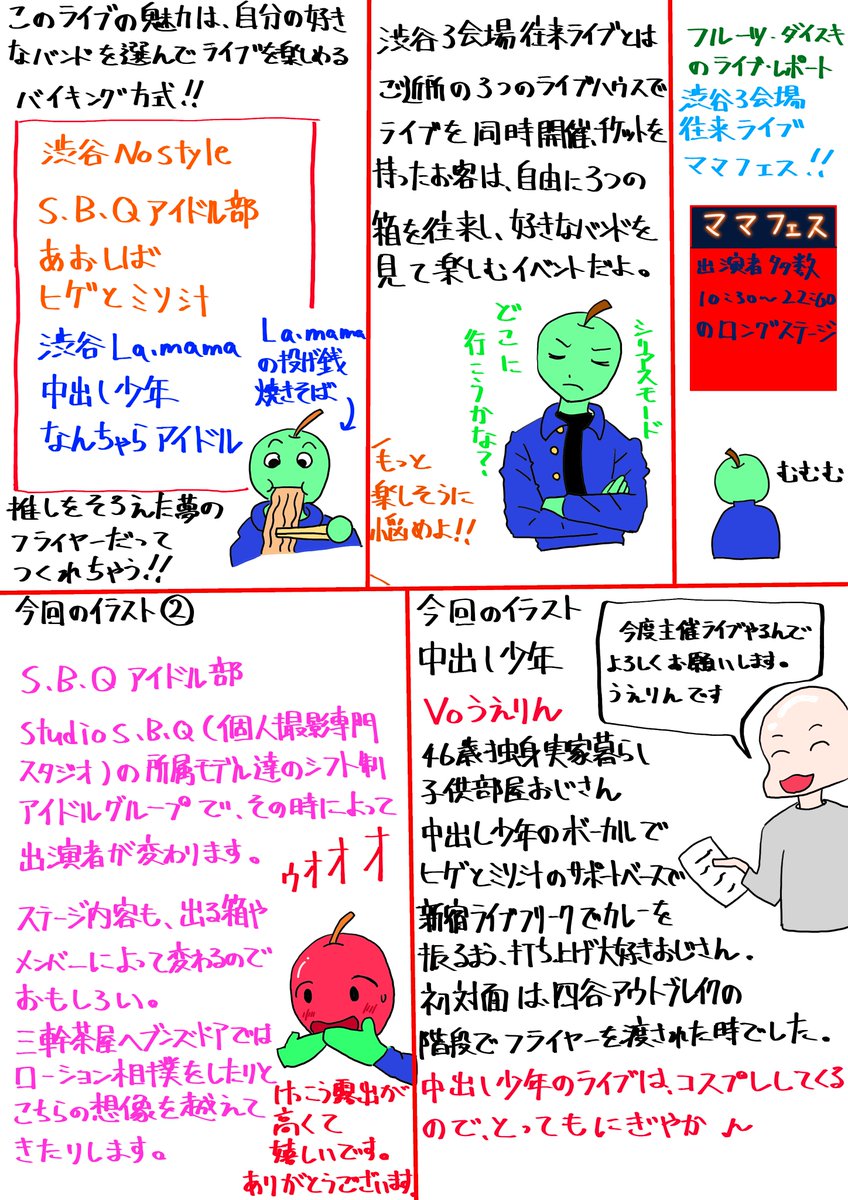 フルーツ・ダイスキ
のライブ・レポート
渋谷3会場
往来ライブ
ママフェス!!
ママフェス
出演者多数
10:30〜22:60
のロングステージ
むむむ
渋谷3会場往来ライブとは
ご近所の3つのライブハウスで
ライブを同時開催、チケットを
持ったお客は、自由に3つの
箱を往来し、好きなバンドを
見て楽しむイベントだよ。
シリアスモード
どこに
行こうかな?
もっと
楽しそうに
悩めよ!!
このライブの魅力は、自分の好き
なバンドを選んでライブを楽しめる
バイキング方式!!
渋谷No style
S.B.Qアイドル部
あおしば
ヒゲとミソ汁
渋谷La.mama
中出し少年
なんちゃらアイドル
La.mama
の投げ銭
焼きそば
推しをそろえた夢の
フライヤーだって
つくれちゃう!!
今回のイラスト
中出し少年
Voうえりん
46歳独身実家暮らし
子供部屋おじさん
中出し少年のボーカルで
ヒゲとミソ汁のサポートベースで
新宿ライブフリークでカレーを
振るまお、打ち上げ大好きおじさん.
初対面は、四谷アウトブレイクの
階段でフライヤーを渡された時でした。
中出し少年のライブは、コスプレしてくる
ので、とってもにぎやか
今度主催ライブやるんで
よろしくお願いします。
うえりんです
今回のイラスト②
S.B.Qアイドル部
Studio S.B.Q(個人撮影専門
スタジオ)の所属モデル達のシフト制
アイドルグループで、その時によって
出演者が変わります。
ウオオオ
ステージ内容も、出る箱や
メンバーによって変わるので
おもしろい。
三軒茶屋ヘブンズドアでは
ローション相撲をしたりと
こちらの想像を越えて
きたりします。
けっこう露出が
高くて
嬉しいです。
ありがとうございます。